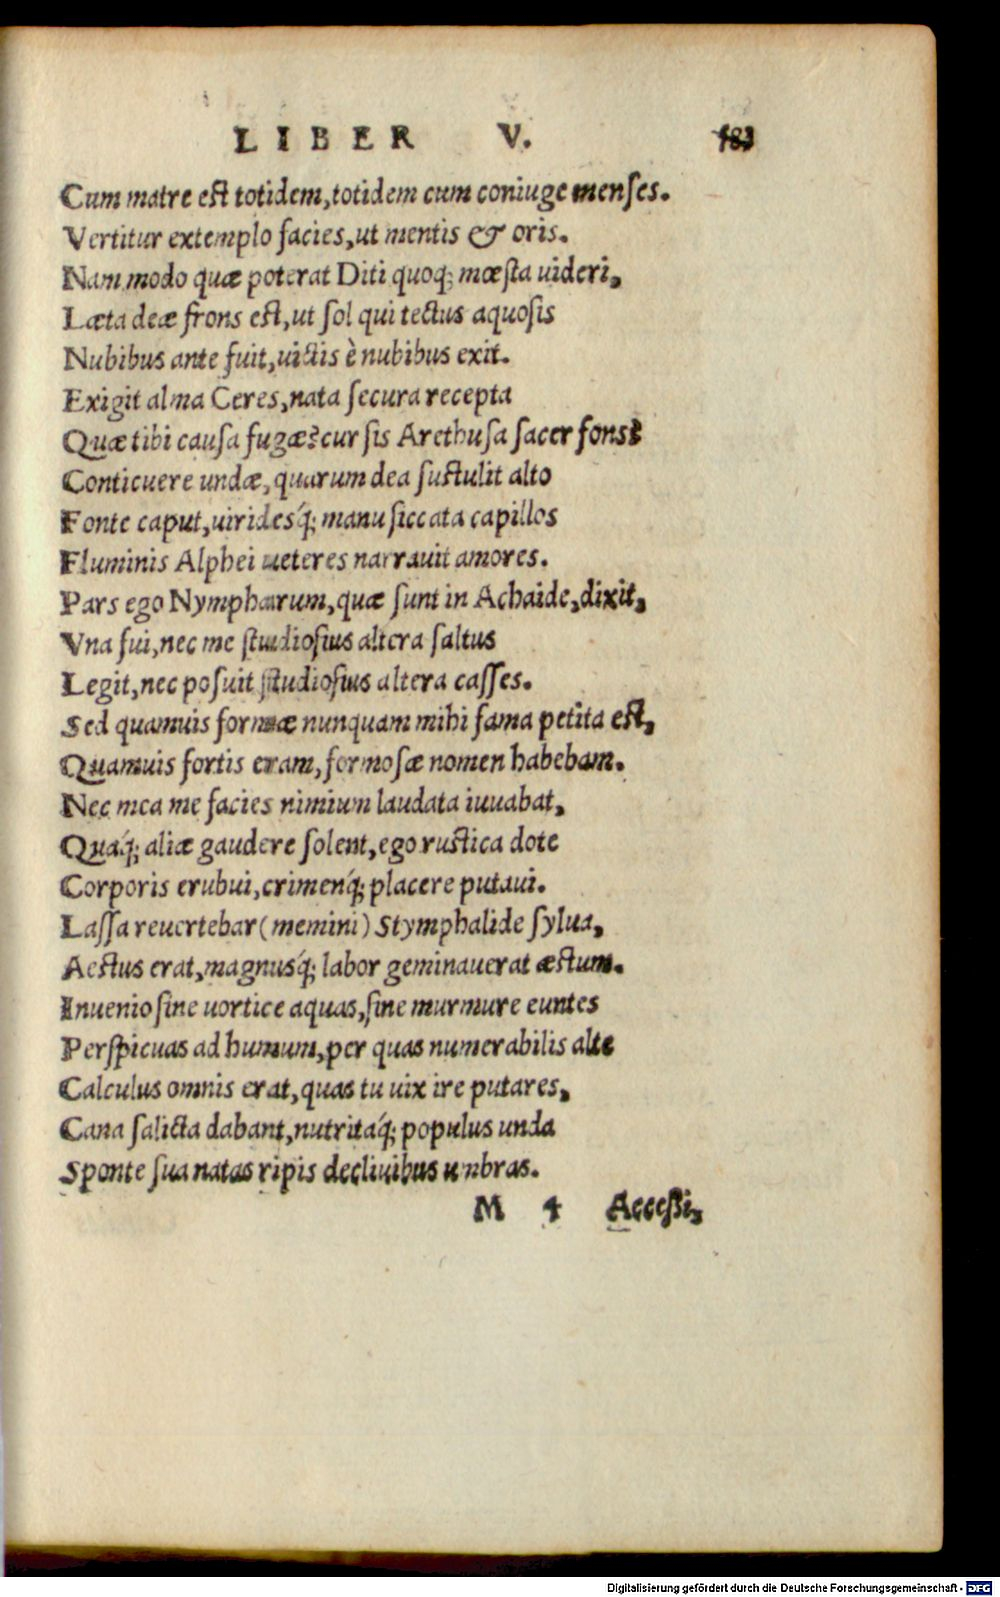 LIBER V. 183
Cum matre est totidem, totidem cum coniuge menses.
Vertitur extemplo facies, ut mentis & oris.
Nam modo quæ poterat Diti quoq; mœsta uideri,
Læta deæ frons est, ut sol qui tectus aquosis
Nubibus ante fuit, uictis è nubibus exit.
Exigit alma Ceres, nata secura recepta
Quæ tibi causa fugæ? cur sis Arethusa sacer fons?
Conticuere undæ, quarum dea sustulit alto
Fonte caput, uirides'q; manu siccata capillos
Fluminis Alphei ueteres narrauit amores.
Pars ego Nympharum, quæ sunt in Achaide, dixit,
Vna fui, nec me studiosius altera saltus
Legit, nec posuit studiosius altera casses.
Sed quamuis formæ nunquam mihi fama petita est,
Quamuis fortis eram, formosæ nomen habebam.
Nec mea me facies nimium laudata iuuabat,
Quá'q; aliæ gaudere solent, ego rustica dote
Corporis erubui, crimen'q; placere putaui.
Lassa reuertebar (memini) Stymphalide sylua,
Aestus erat, magnus'q; labor geminauerat æstum.
Inuenio sine uortice aquas, sine murmure euntes
Perspicuas ad humum, per quas numerabilis alte
Calculus omnis erat, quas tu uix ire putares,
Cana salicta dabant, nutrita'q; populus unda
Sponte sua natas ripis decliuibus umbras.
M 4 Accessi,
Digitalisierung gefördert durch die Deutsche Forschungsgemeinschaft - DFG